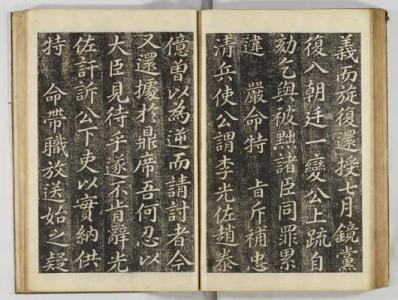 義而旋復還授七月鏡黨
復入朝廷一變公上疏自
劾乞與被黜諸臣同罪累
違 嚴命特 旨斥補忠
清兵使公謂李光佐趙泰
億曽以為逆而請討者今
又還據於鼎席吾何忍以
大臣見待乎遂不肯辭光
佐訴公下吏以實納供
特 命帶職放送始之疑